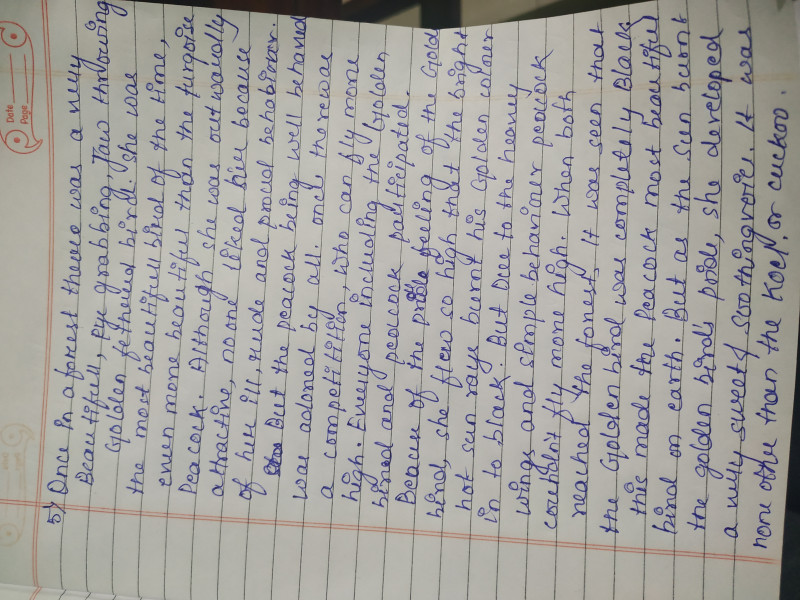 Date
Page
5) Once In a forest there was a very
Beautifull, eye grabbing, Jaw throwing
Golden fethured bird. she was
the most beautifull bird of the time,
even more beautiful than the turqoise
Peacock. Although she was outwardly
attractive, no one liked her because
of her ill, rude and proud behabiour.
But the peacock being well behaved
was adored by all. once there was
a competitition, who can fly more
high. Everyone including the Golden
bird and peacock participated.
Beacuse of the pride feeling of the Gold
bird, she flew so high that the bright
hot sun rays burnt his Golden colour
in to black. But Due to the heavy
wings and simple behaviner peacock
couldn't fly more high. When both
reached the forest. It was seen that
the Golden bird was completely Black
this made the Peacock most beautiful
bird on earth. But as the sun burnt
the golden bird's pride, she developed
a very sweet & soothing voice. It was
none other than the Koel. or cuckoo.